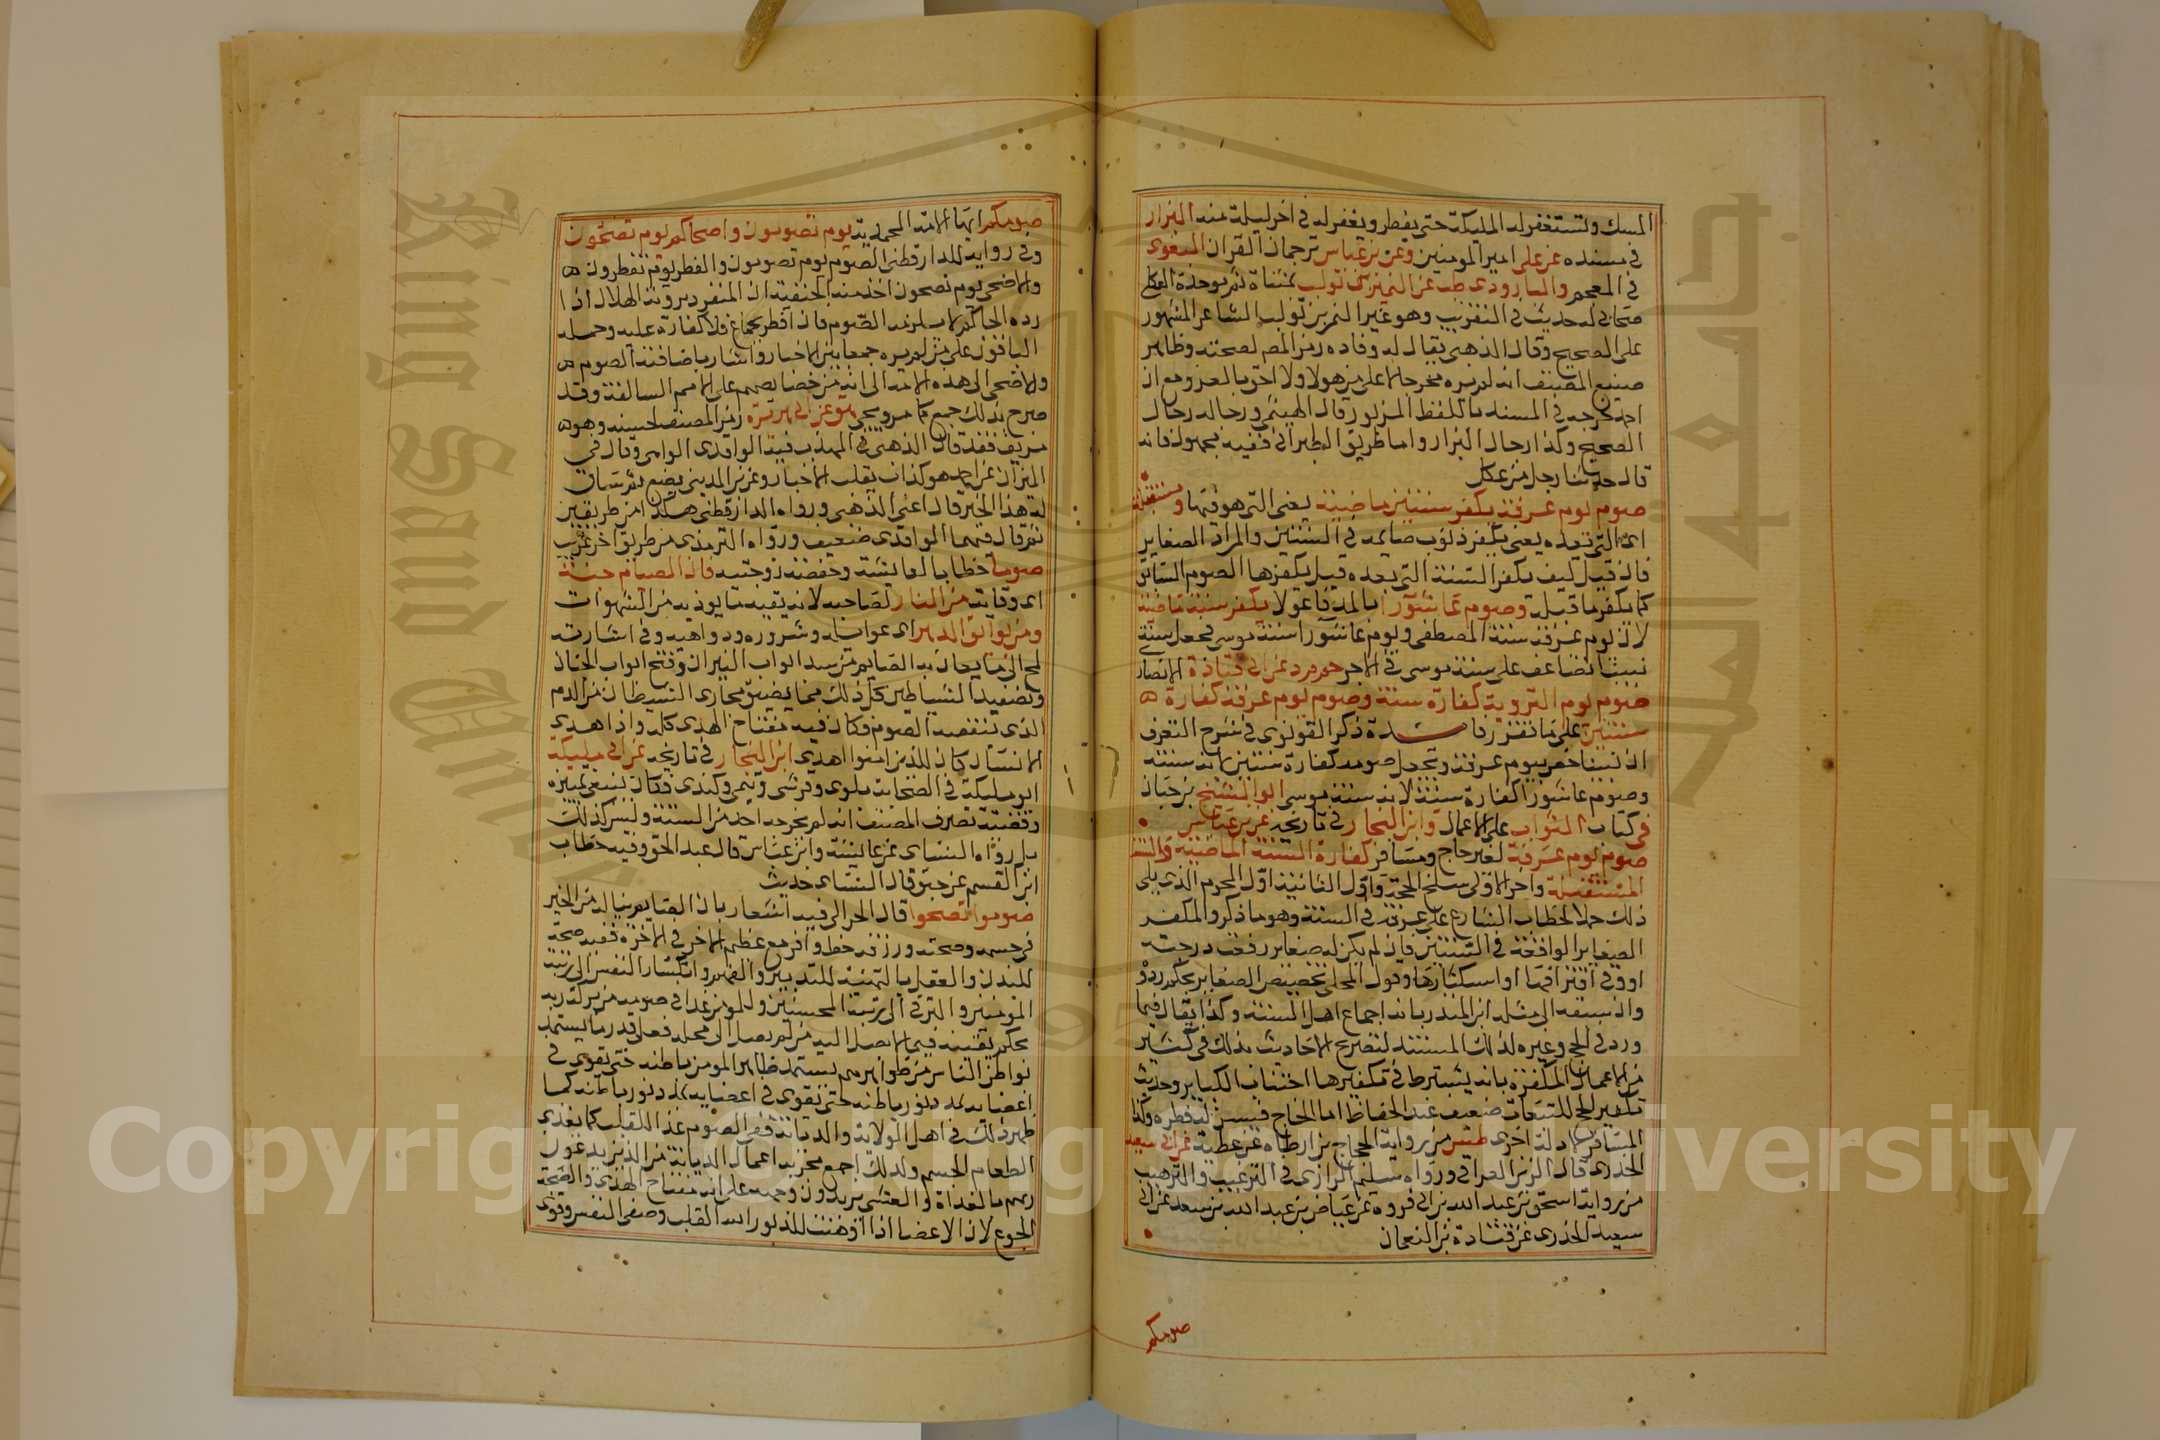 المسك وتستغفر له المليكة حتى يفطر ويغفر له في اخر ليلة منه البزار
في مسنده عن علي امير المومنين وعن بن عباس ترجمان القران البغوى
في المعجم والباوردى طب عن النمر بن تولب بمثناة ثم موحدة العكلي
صحابي له حديث في التقريب وهو غير النمر بن تولب الشاعر المشهور
على الصحيح وقال الذهبي يقال له وفادة رمز المص لصحته وظاهر
صنيع المصنف انه لم يره مخرجا لاعلى من هولا ولا احق بالعزو مع ان
احمد خرجه في المسند باللفظ المزبور قال الهيثمي ورجاله رجال
الصحيح وكذا رجال البزار واما طريق الطبراني ففيه مجهول فانه
قال حدثنا رجل من عكل
صوم يوم عرفة يكفر سنتين ماضية يعني التي هو فيها ومستقبلة
اى التي بعده يعني يكفر ذنوب صايمه في السنتين والمراد الصغاير
فان قيل كيف يكفر السنة التي بعده قيل يكفرها الصوم السابق
كما يكفر ما قبله وصوم عاشورا بالمد فاعولا يكفر سنة ماضية
لان يوم عرفة سنة المصطفى ويوم عاشورا سنة موسى فجعل سنة
نبينا تضاعف على سنة موسى في الاجر حم م د عن ابي قتادة الانصار
صوم يوم التروية كفارة سنة وصوم يوم عرفة كفارة
سنتين على ما تقرر فايدة ذكر القونوى في شرح التعرف
ان نبينا خص بيوم عرفة وجعل صومه كفارة سنتين لانه سنته
وصوم عاشورا كفارة سنة لانه سنة موسى ابو الشيخ بن حبان
في كتاب الثواب على الاعمال وابن النجار في تاريخه عن بن عباس
صوم يوم عرفة لغير حاج ومسافر كفارة السنة الماضية والسنة
المستقبلة واخر الاولى سلخ الحجة واول الثانية اول المحرم الذى يلي
ذلك حملا لخطاب الشارع على عرفه في السنة وهو ما ذكر والمكفر
الصغاير الواقعة في السنتين فان لم يكن له صغاير رفعت درجته
او وقي اقترافها او استكثارها وقول المجلي تخصيص الصغاير تحكم ردو
وان سبقه الى مثله ابن المنذر بانه اجماع اهل السنة وكذا يقال فيما
ورد في الحج وغيره لذلك المستند لتصريح الاحاديث بذلك في كثير
من الاعمال المكفرة بانه يشترط في تكفيرها اجتناب الكباير وحديث
تكفير الحج للتبعات ضعيف عند الحفاظ اما الحاج فيسن له فطره وكذا
المسافر لادلة اخرى طس من رواية الحجاج بن ارطاه عن عطية عن ابي سعيد
الخدرى قال الزين العراقي ورواه سليم الرازى في الترغيب والترهيب
من رواية اسحق بن عبد الله بن ابي فروة عن عياض بن عبد الله بن سعد عن ابي
سعيد الخدرى عن قتادة بن النعمان
صومكم
صومكم ايها الامة المحمدية يوم تصومون واضحاكم يوم تضحون
وفي رواية للدارقطني الصوم يوم تصومون والفطر يوم تفطرون
والاضحى يوم تضحون اخذ منه الحنفية ان المنفرد بروية الهلال اذا
رده الحاكم لا يلزمه الصوم فان افطر بجماع فلا كفارة عليه وحمله
الباقون على من لم يره جمعا بين الاخبار واشار باضافة الصوم
والاضحى الى هذه الامة الى انه من خصايصهم على الامم السالفة وقد
صرح بذلك جمع كما مر ويجي هق عن ابي هريرة رمز المصنف لحسنه وهو
مزيف فقد قال الذهبي في المهذب فيه الواقدى الواهي وقال في
الميزان عن احمد هو كذاب يقلب الاخبار وعن بن المديني يضع ثم ساق
له هذا الخبر قال اعني الذهبي ورواه الدارقطني هكذا من طريقين
ثم قال فيهما الواقدى ضعيف ورواه الترمذى من طريق اخر غريب
صوما خطابا لعايشة وحفصة زوجتيه فان الصيام جنة
اى وقاية من النار لصاحبه لانه يقيه ما يوذيه من الشهوات
ومن بوايق الدهر اى غوايله وشروره ودواهيه وفي اشارته
لمح الى ما يعان به الصايم من سد ابواب النيران وفتح ابواب الجنان
وتصفيد الشياطين كل ذلك مما يضيق مجارى الشيطان من الدم
الذى ينقصه الصوم فكان فيه مفتاح الهدى كله واذا هدى
الانسان كان للذين امنوا اهدى ابن النجار في تاريخه عن ابي مليكة
ابو مليكة في الصحابة بلوى وقرشي وتيمي وكندى فكان ينبغي تمييزه
وقضية تصرف المصنف انه لم يخرجه احد من الستة وليس كذلك
بل رواه النساى عن عايشة وابن عباس قال عبد الحق وفيه خطاب
ابن القسم عن خصيف قال النساى حديث
صوموا تصحوا قال الحرالي فيه اشعار بان الصايم يناله من الخير
في جسمه وصحته ورزقه حظ وافر مع عظم الاجر في الاخرة ففيه صحة
للبدن والعقل بالتهيية للتدبير والفهم وانكسار النفس الى رتبة
المومنين والترقي الى رتبة المحسنين وللمومن غذا في صومه من بركة ربه
بحكم يقينه فيما لا يصل اليه من لم يصل الى محله فعلى قدر ما يستمد
بواطن الناس من ظواهرهم يستمد ظاهر المومن باطنه حتى يقوى في
اعضايه بمدد نور باطنه حتى تقوى في اعضايه بمدد نور باطنه كما
ظهر ذلك في اهل الولاية والديانة ففي الصوم غذا للقلب كما يغذى
الطعام الجسم ولذلك اجمع مجربه اعمال الديانة من الذين يدعون
ربهم بالغداة والعشي يريدون وجهه على انه مفتاح الهدى والصحة
الجوع لان الاعضا اذا وهنت لله نور الله القلب وصفى النفس وقوى